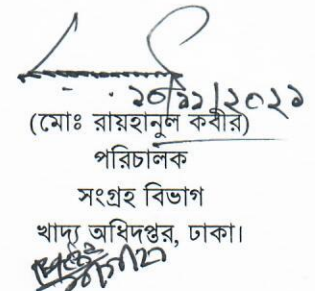 ১০/১১/২০২১
(মোঃ রায়হানুল কবীর)
পরিচালক
সংগ্রহ বিভাগ
খাদ্য অধিদপ্তর, ঢাকা।